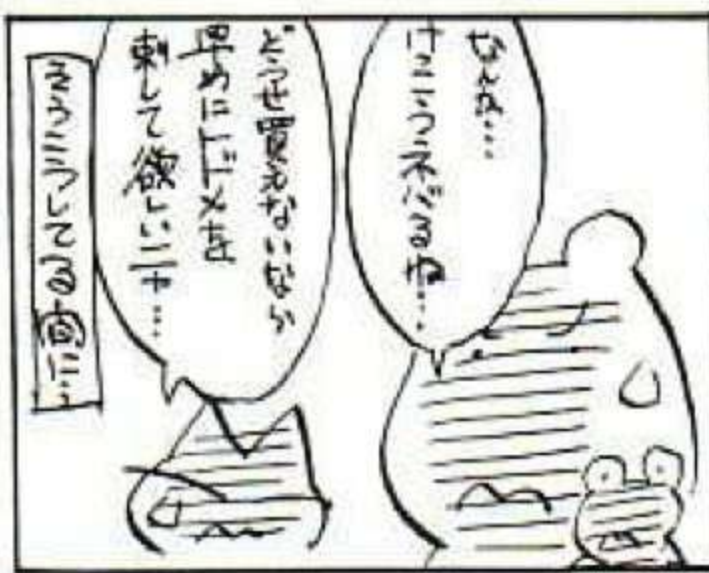 だんな…
けっこうネバるね…
どうせ買えないなら
早めにトドメを
刺して欲しいニャ…
そうこうしてる間に…